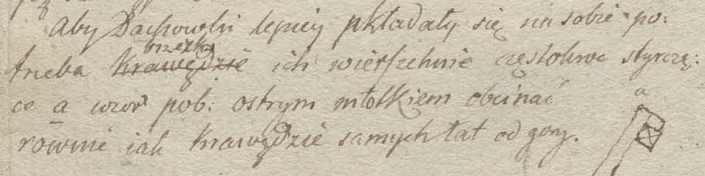 Aby Dachowki lepiey pkładały się na sobie po:
trzeba krawędzie brzeżki ich wierzchnie częstokroć styrczą:
ce a wzór pob: ostrym młotkiem obcinać
a
równie iak krawędzie samych łat od gory.